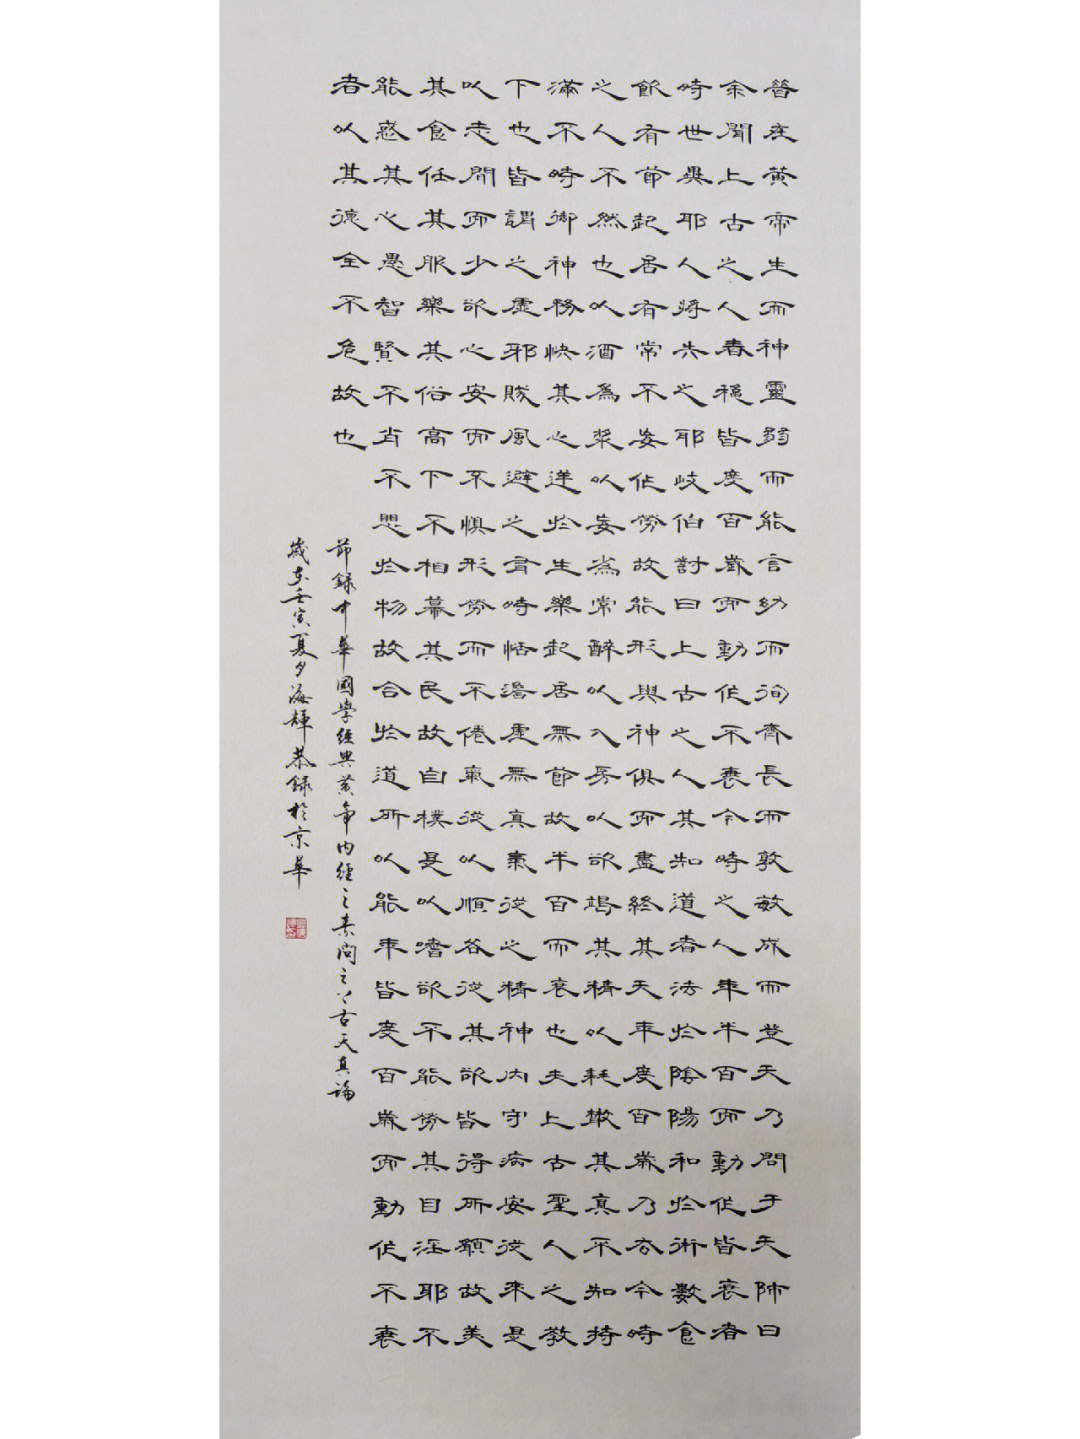 昔在黃帝生而神靈弱而能言幼而徇齊長而敦敏成而登天乃問于天師曰
余聞上古之人春穐皆度百歲而動作不衰今時之人年半百而動作皆衰者
時世異耶人將失之耶岐伯對曰上古之人其知道者法於陰陽和於術數食
飲有節起居有常不妄作勞故能形與神俱而盡終其天年度百歲乃去今時
之人不然也以酒為漿以妄為常醉以入房以欲竭其精以耗散其真不知持
滿不時御神務快其心逆於生樂起居無節故半百而衰也夫上古聖人之教
下也皆謂之虛邪賊風避之有時恬澹虛無真氣從之精神內守病安從來是
以志閒而少欲心安而不懼形勞而不倦氣從以順各從其欲皆得所願故美
其食任其服樂其俗高下不相慕其民故自樸是以嗜欲不能勞其目淫耶不
能惑其心愚智賢不肖不愳於物故合於道所以能年皆度百歲而動作不衰
者以其德全不危故也
節錄中華國學經典黃帝內經之素問之上古天真論
歲在壬寅夏夕海輝恭錄於京華